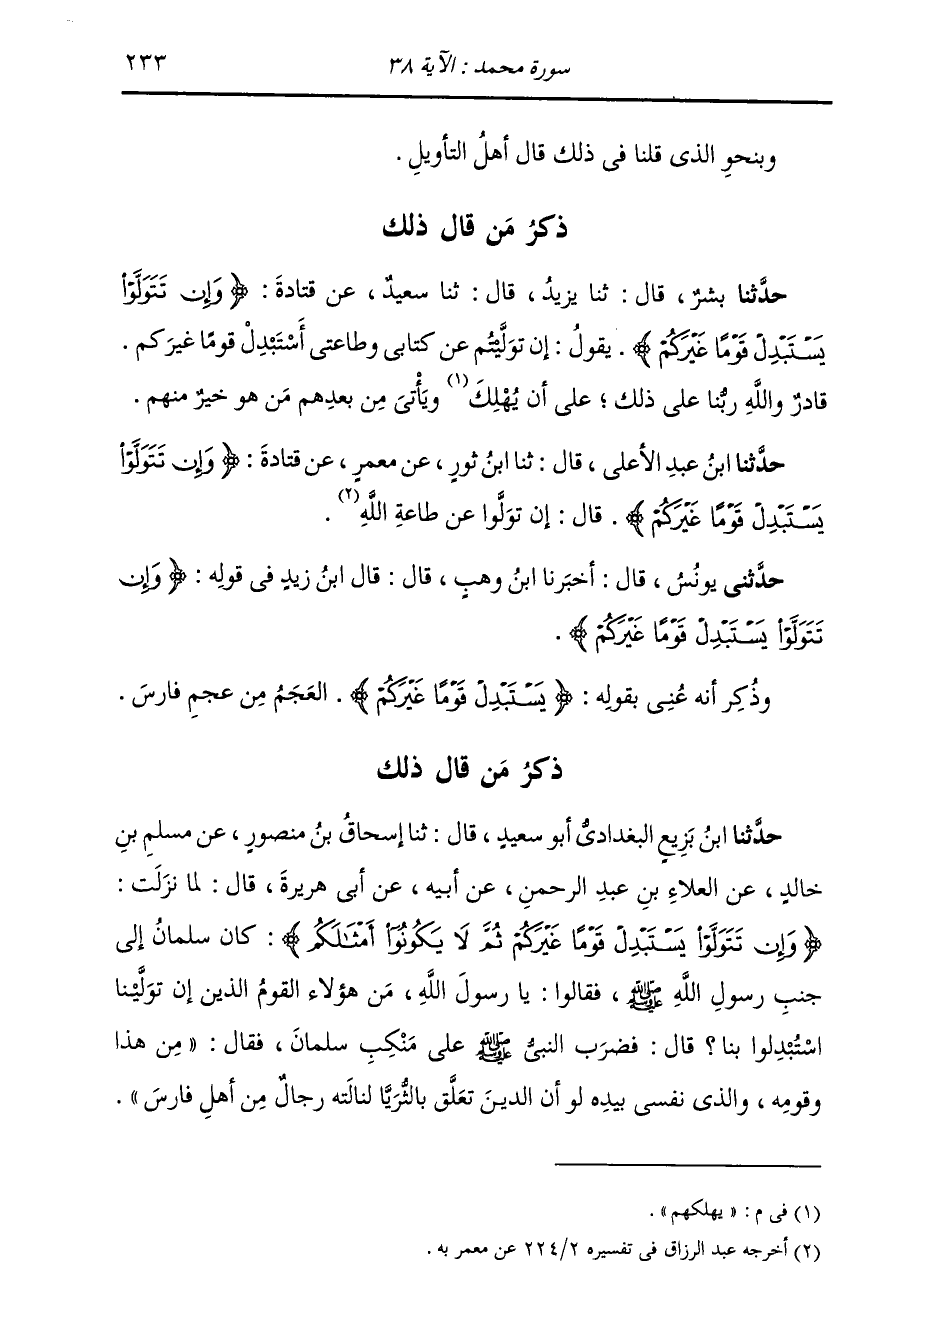 سورة محمد : الآية ٣٨
٢٣٣
وبنحوِ الذى قلنا فى ذلك قال أهلُ التأويلِ .
ذكرُ مَن قال ذلك
حدَّثنا بشرٌ ، قال : ثنا يزيدُ ، قال : ثنا سعيدٌ ، عن قتادةَ : ﴿ وَإِن تَتَوَلَّوْا
يَسْتَبْدِلْ قَوْمًا غَيْرَكُمْ ﴾ . يقولُ : إن تولَّيْتُم عن كتابى وطاعتى أَسْتَبْدِلْ قومًا غيرَكم .
قادرٌ واللَّهِ ربُّنا على ذلك ؛ على أن يُهْلِكَ(١) ويَأْتىَ مِن بعدِهم مَن هو خيرٌ منهم .
حدَّثنا ابنُ عبدِ الأعلى ، قال : ثنا ابنُ ثورٍ ، عن معمرٍ ، عن قتادةَ : ﴿ وَإِن تَتَوَلَّوْا
يَسْتَبْدِلْ قَوْمًا غَيْرَكُمْ ﴾ . قال : إن تولَّوا عن طاعةِ اللَّهِ(٢) .
حدَّثنى يونُسُ ، قال : أخبَرنا ابنُ وهبٍ ، قال : قال ابنُ زيدٍ فى قولِه : ﴿ وَإِن
تَتَوَلَّوْا يَسْتَبْدِلْ قَوْمًا غَيْرَكُمْ ﴾ .
وذُكِر أنه عُنِى بقولِه : ﴿ يَسْتَبْدِلْ قَوْمًا غَيْرَكُمْ ﴾ . العَجَمُ مِن عجمِ فارسَ .
ذكرُ مَن قال ذلك
حدَّثنا ابنُ بَزِيعٍ البغدادىُّ أبو سعيدٍ ، قال : ثنا إسحاقُ بنُ منصورٍ ، عن مسلمِ بنِ
خالدٍ ، عن العلاءِ بنِ عبدِ الرحمنِ ، عن أبيه ، عن أبى هريرةَ ، قال : لما نزَلَت :
﴿ وَإِن تَتَوَلَّوْا يَسْتَبْدِلْ قَوْمًا غَيْرَكُمْ ثُمَّ لَا يَكُونُوٓا أَمْثَـٰلَكُم ﴾ : كان سلمانُ إلى
جنبِ رسولِ اللَّهِ ﷺ ، فقالوا : يا رسولَ اللَّهِ ، مَن هؤلاء القومُ الذين إن تولَّيْنا
اسْتُبْدِلوا بنا ؟ قال : فضرَب النبىُّ ﷺ على مَنْكِبِ سلمانَ ، فقال : « مِن هذا
وقومِه ، والذى نفسى بيدِه لو أن الدينَ تعَلَّق بالثُّرَيَّا لنالَته رجالٌ مِن أهلِ فارسَ » .
(١) فى م : « يهلكهم » .
(٢) أخرجه عبد الرزاق فى تفسيره ٢٢٤/٢ عن معمر به .